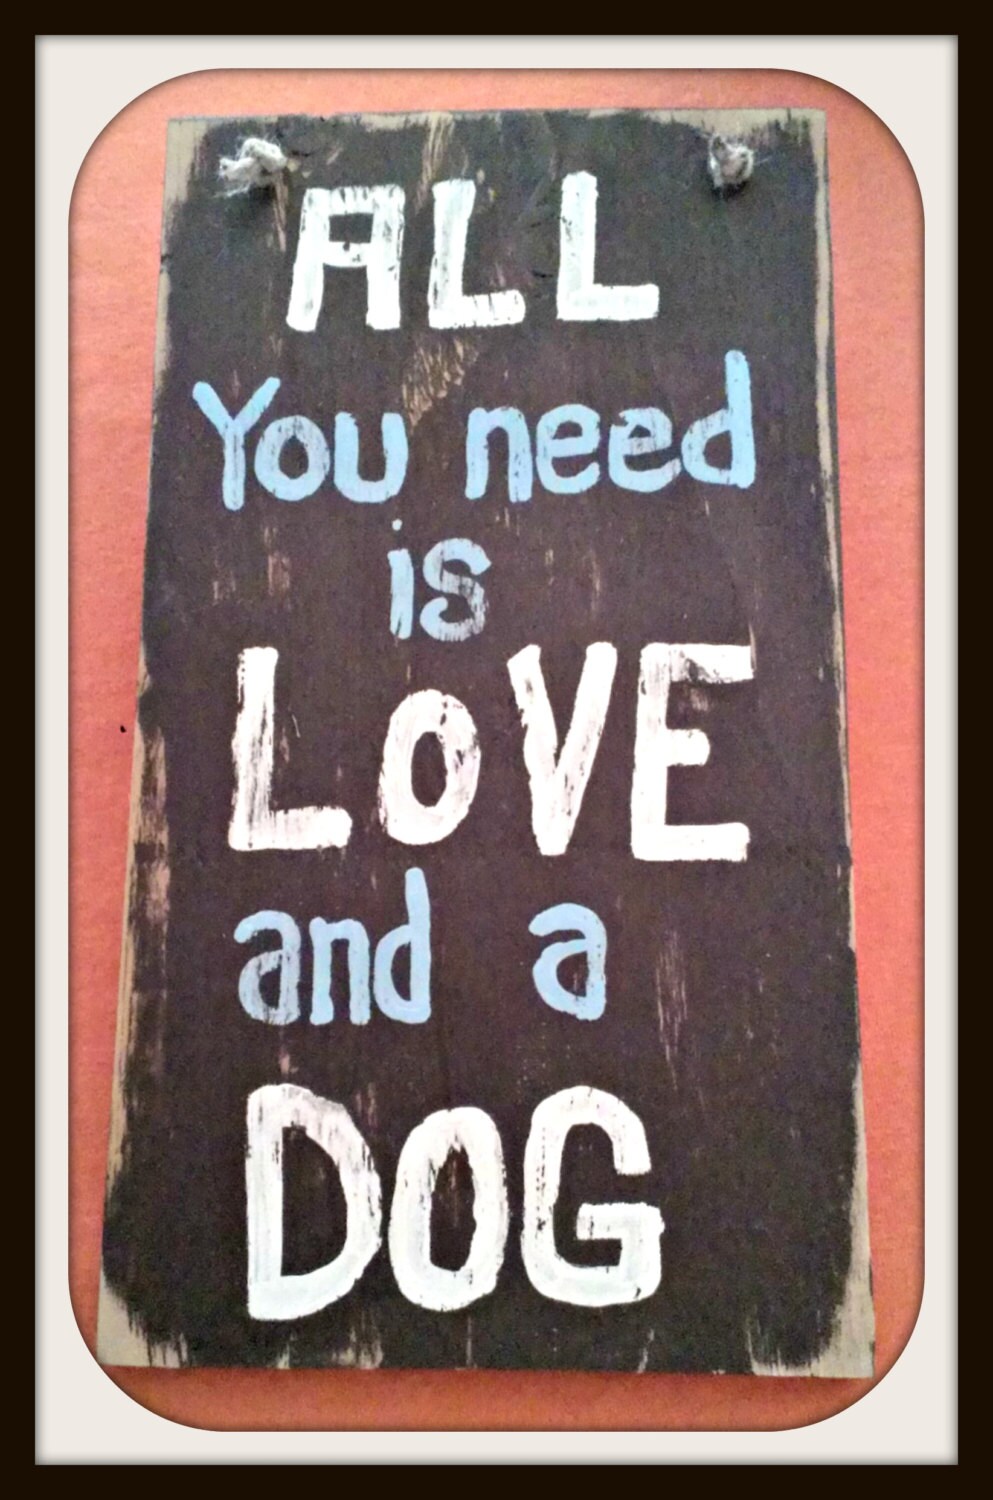 ALL
You need
is
LoVE
and a
DOG